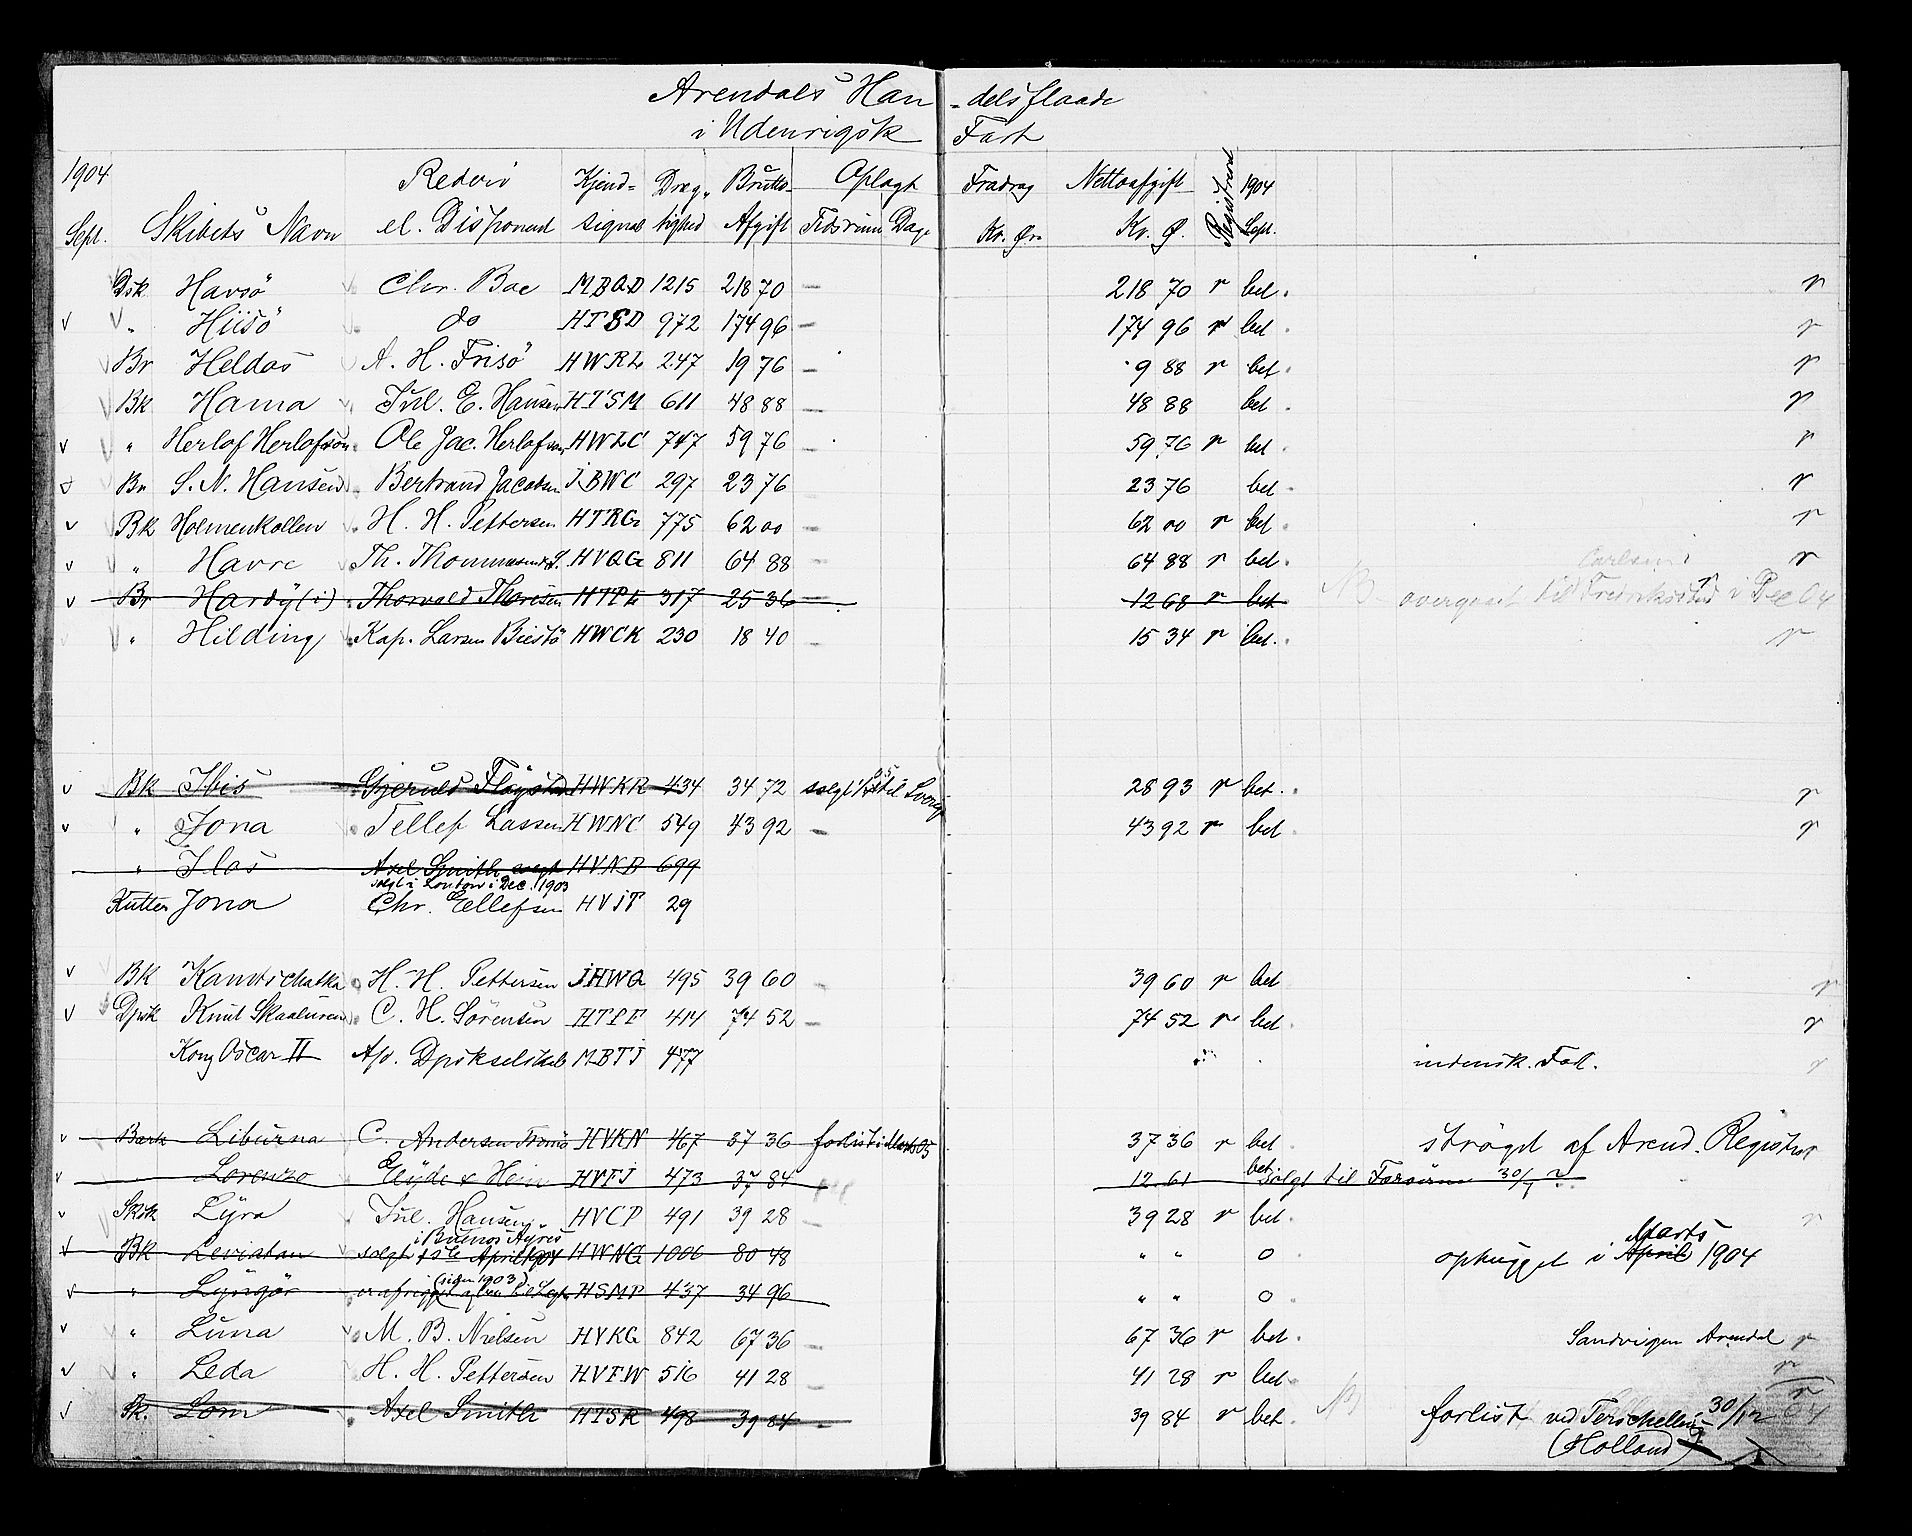 Arendals Han-delsflaade
i Udenrigsk Fart
1904 Rederi Kjend= Dræg- Brutto- Oplagt Fradrag Nettoafgift Registreret 1904
Sept. Skibets Navn el. Disponent signal tighed Afgift Tidsrum Dage Kr. Ør. Kr. Ø. Sept.
Dsk Havsö Chr. Boe MBQD 1215 218 70 — 218 70 r bet. r
v " Hiisö do HTSD 972 174 96 — 174 96 r bet r
Br Heldas A. H. Frisö HWRL 247 19 76 — 9 88 r bet. r
Bk Hama Jul. E. Hansen HTSM 611 48 88 — 48 88 bet r
v " Herlof Herlofson Ole Jac. Herlofson HWLC 747 59 76 59 76 r bet r
v Br S. N. Hansen Bertrand Jacobsen JBWC 297 23 76 — 23 76 bet r
v Bk Holmenkollen H. H. Pettersen HTRG 775 62 00 — 62 00 r bet r
v " Havre Th. Thommesen & S. HVQG 811 64 88 — 64 88 r bet. r
Carlsen
v Br Hardy (i) Thorvald Thoresen HTPL 317 25 36 12 68 r bet NB overgaaet til Fredrikstad i
" Hilding Kap. Larsen Biestö HWCK 230 18 40 — 15 34 r bet. r
v Bk Ibis Gjeruld Flöystad HWKR 434 34 72 solgt til Sverige 28 93 r bet. r
v " Jona Tellef Lassen HWNC 549 43 92 — 43 92 r bet r
" Ilos Axel Smith solgt HVND 699
solgt i London i Dec. 1903
Kutter Jona Chr. Ellefsen HVJT 29
v Bk Kamtschatka H. H. Pettersen JHWQ 495 39 60 — 39 60 r bet r
v Dpsk Knut Skaaluren C. H. Sörensen HTPF 414 74 52 — 74 52 r bet. r
Kong Oscar II A/s. Dpskselskab MBTJ 477 indensk. Fart. r
v Bark Liburna C. Andersen Tromö HVKN 467 37 36 forlist i Marts 05 37 36 r bet. ströget af Arend. Register
v " Lorenzo Eÿde & Hein HVFJ 473 37 84 12.61 bet. solgt til Færöerne 30/
v Skbk Lÿra Jul. Hansen HVCP 491 39 28 — 39 28 r bet. r
i Buenos Ayres Marts
v Bk Leviatan solgt HWNG 1006 80 48 " " 0 ophugget i April 1904
(siden 1903)
v " Lyngör HSMP 437 34 96 " " 0
v " Luna M. B. Nielsen HVKG 842 67 36 — 67 36 r bet. Sandvigen Arendal r
v " Leda H. H. Pettersen HVFW 516 41 28 — 41 28 r bet. r
v Sk. Lom Axel Smith HTSR 498 39 84 39 84 r bet. NB forlist ved Terschelling 30/12 04
(Holland)